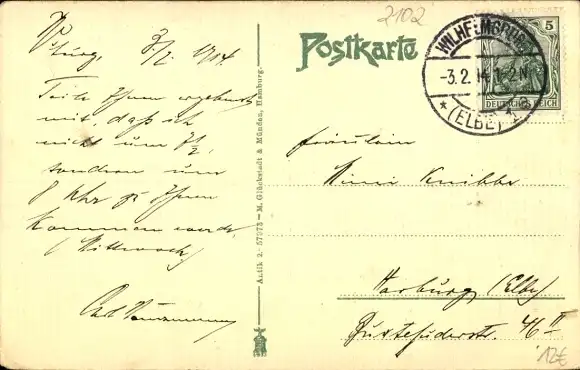 2102
Postkarte
WILHELMSBURG
-3.2.14.1-2N
* (ELBE) 1
5
DEUTSCHES REICH
3/2. 1914.
Teile Ihnen ergebenst
mit daß ich
nicht um 7½,
sondern um
8 Uhr zu Ihnen
kommen werde.
(Mittwoch)
Carl
Fräulein
Mimi Knibbe
Harburg (Elbe)
Buxtehuderstr. 46 II
Art.lk 2.- 57975 - M. Glückstadt & Münden, Hamburg.
12€